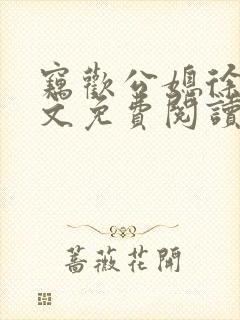 竊歡公媳徐
文免費閱讀
蔷薇花開